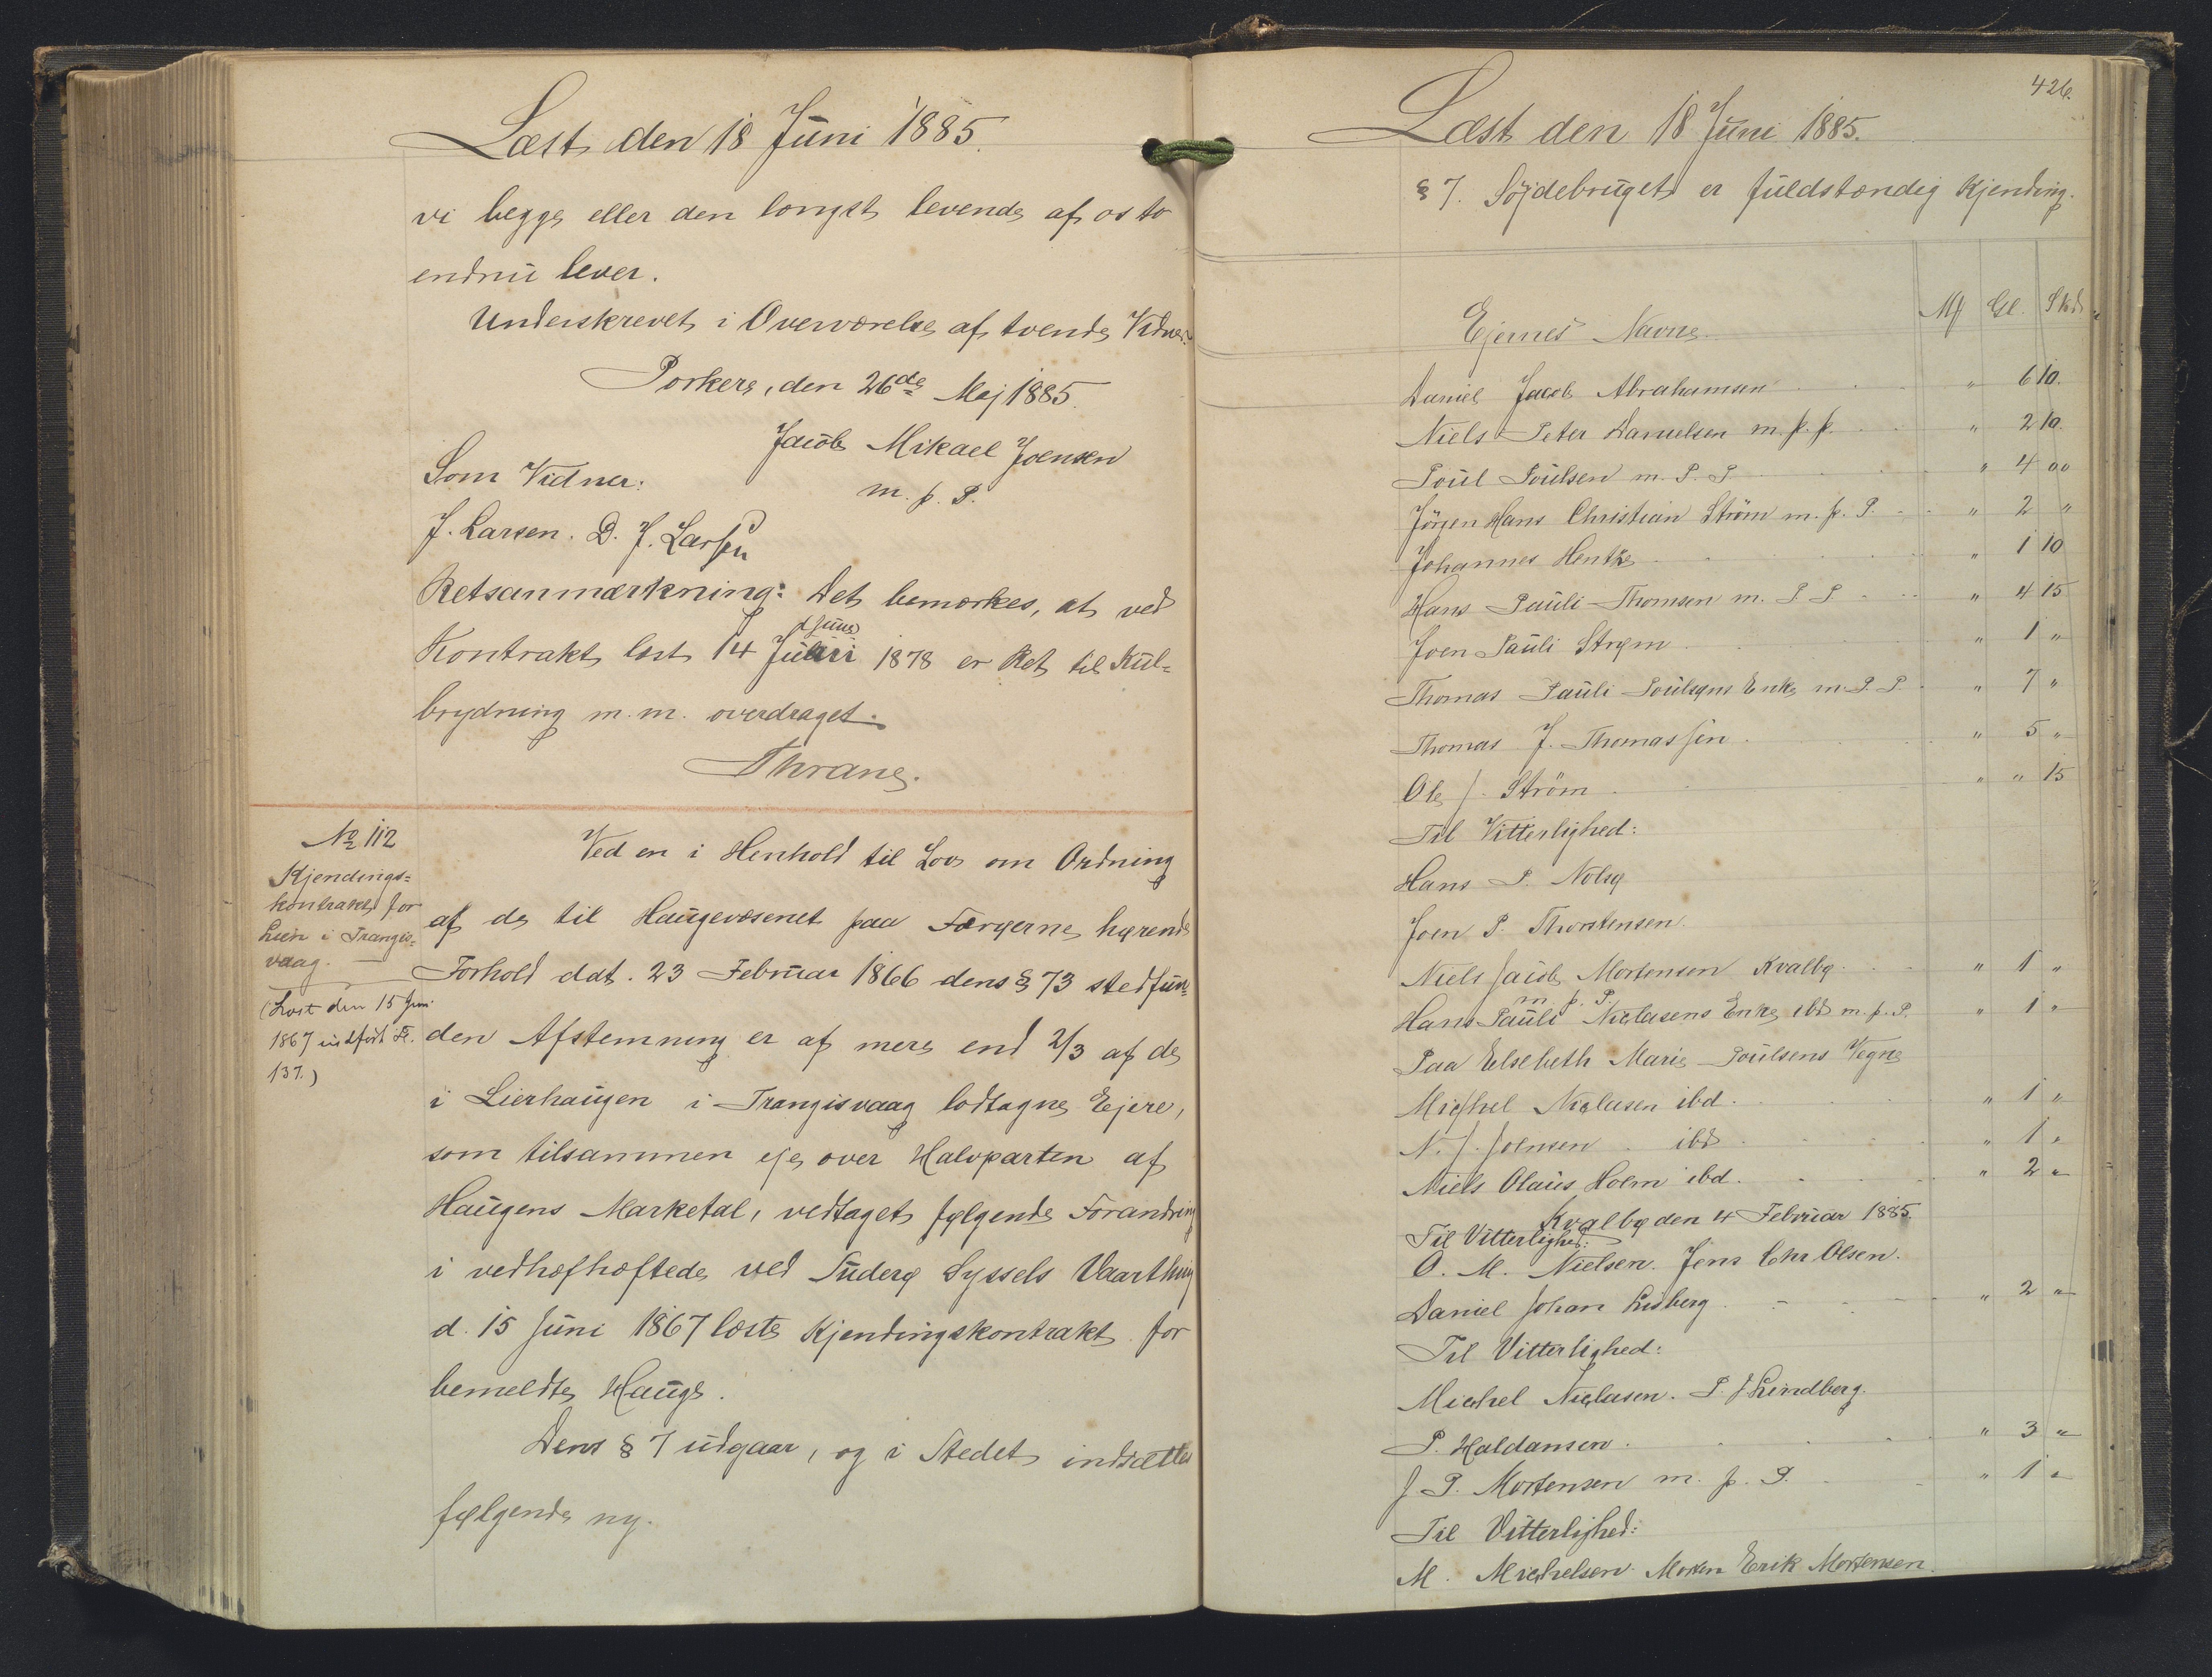 Læst den 18 Juni 1885.
vi begge eller den længst levende af os to
endnu lever.
Underskrevet i Overværelse af tvende Vidner.
Porkere, den 26de Maj 1885.
Jacob Mikael Joensen
m. p. P.
Som Vidner:
J. Larsen. D. J. Larsen
Retsanmærkning: Det bemærkes, at ved
Juni
Kontrakt læst 14 1878 er Ret til Kul-
brydning m. m. overdraget.
Thrane.
No 112
Kjendings-
kontrakt for
Lien i Trangis-
vaag.
(Læst den 15 Juni
1867 indført Fol.
137.)
Ved en i Henhold til Lov om Ordning
af de til Haugevæsenet paa Færøerne hørende
Forhold dat. 23 Februar 1866 dens § 73 stedfun-
den Afstemning er af mere end 2/3 af de
i Lierhaugen i Trangisvaag lodtagne Ejere,
som tilsammen eje over Halvparten af
Haugens Marketal, vedtaget følgende Forandring
i vedhæfhæftede ved Suderø Syssels Vaarthing
d. 15 Juni 1867 læste Kjendingskontrakt for
bemeldte Hauge.
Dens § 7 udgaar, og i Stedet indsættes
følgende ny.
426.
Læst den 18 Juni 1885.
§ 7. Søjdebruget er fuldstændig Kjending.
Ejernes Navne Mk Gl. Skd
Daniel Jacob Abrahamsen " 6 10.
Niels Peter Danielsen m. p. p. " 2 10.
Poul Poulsen m. P. P " 4 00
Jörgen Hans Christian Ström m. p. P. " 2 "
Johannes Hentze " 1 10
Hans Pauli Thomsen m. P P " 4 15
Joen Pauli Strøm " 1 "
Thomas Pauli Poulsens Enke m. P. P " 7 "
Thomas J. Thomassen " 5 "
Ole J. Ström " " 15
Til Vitterlighed:
Hans P. Nolsø
Joen P. Thorstensen.
Niels Jacob Mortensen Kvalbø " 1 "
m. p. P.
Hans Pauli Niclasens Enke ibd m. p. P. " 1 "
Paa Elsebeth Marie Poulsens Vegne
Michel Niclasen ibd. " 1 "
N. J. Joensen ibd " 1 "
Niels Olaus Holm ibd. " 2 "
Kvalbø den 4 Februar 1885.
Til Vitterlighed:
O. M. Nielsen. Jens Chr Olsen.
Daniel Johan Lisberg " 2 "
Til Vitterlighed:
Michel Niclasen. P. J Lindberg.
P. Haldansen. " 3 "
J P. Mortensen m. p. P. " 1 "
Til Vitterlighed:
M. Michelsen Morten Erik Mortensen.